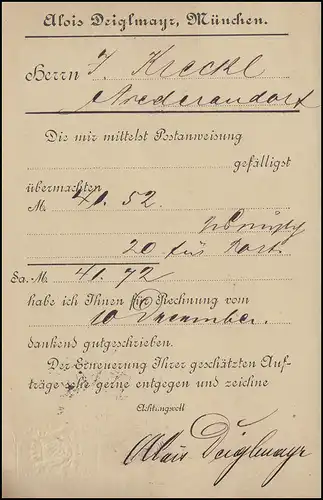 Alois Deiglmayr, München.
Herrn J. Kreckl
Niederandorf
Die mir mittelst Postanweisung
gefälligst
übermachten
M. 41. 52.
20 für Port.
Sa. M. 41. 72
habe ich Ihnen für Rechnung vom
10 Dezember.
dankend gutgeschrieben.
Der Erneuerung Ihrer geschätzten Auf-
träge sehe gerne entgegen und zeichne
Achtungsvoll
Alois Deiglmayr